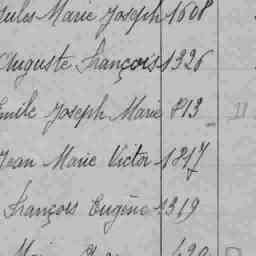 Jules Marie Joseph 1608
Auguste François 1326
Emile Joseph Marie 813
Jean Marie Victor 1847
François Eugène 1319